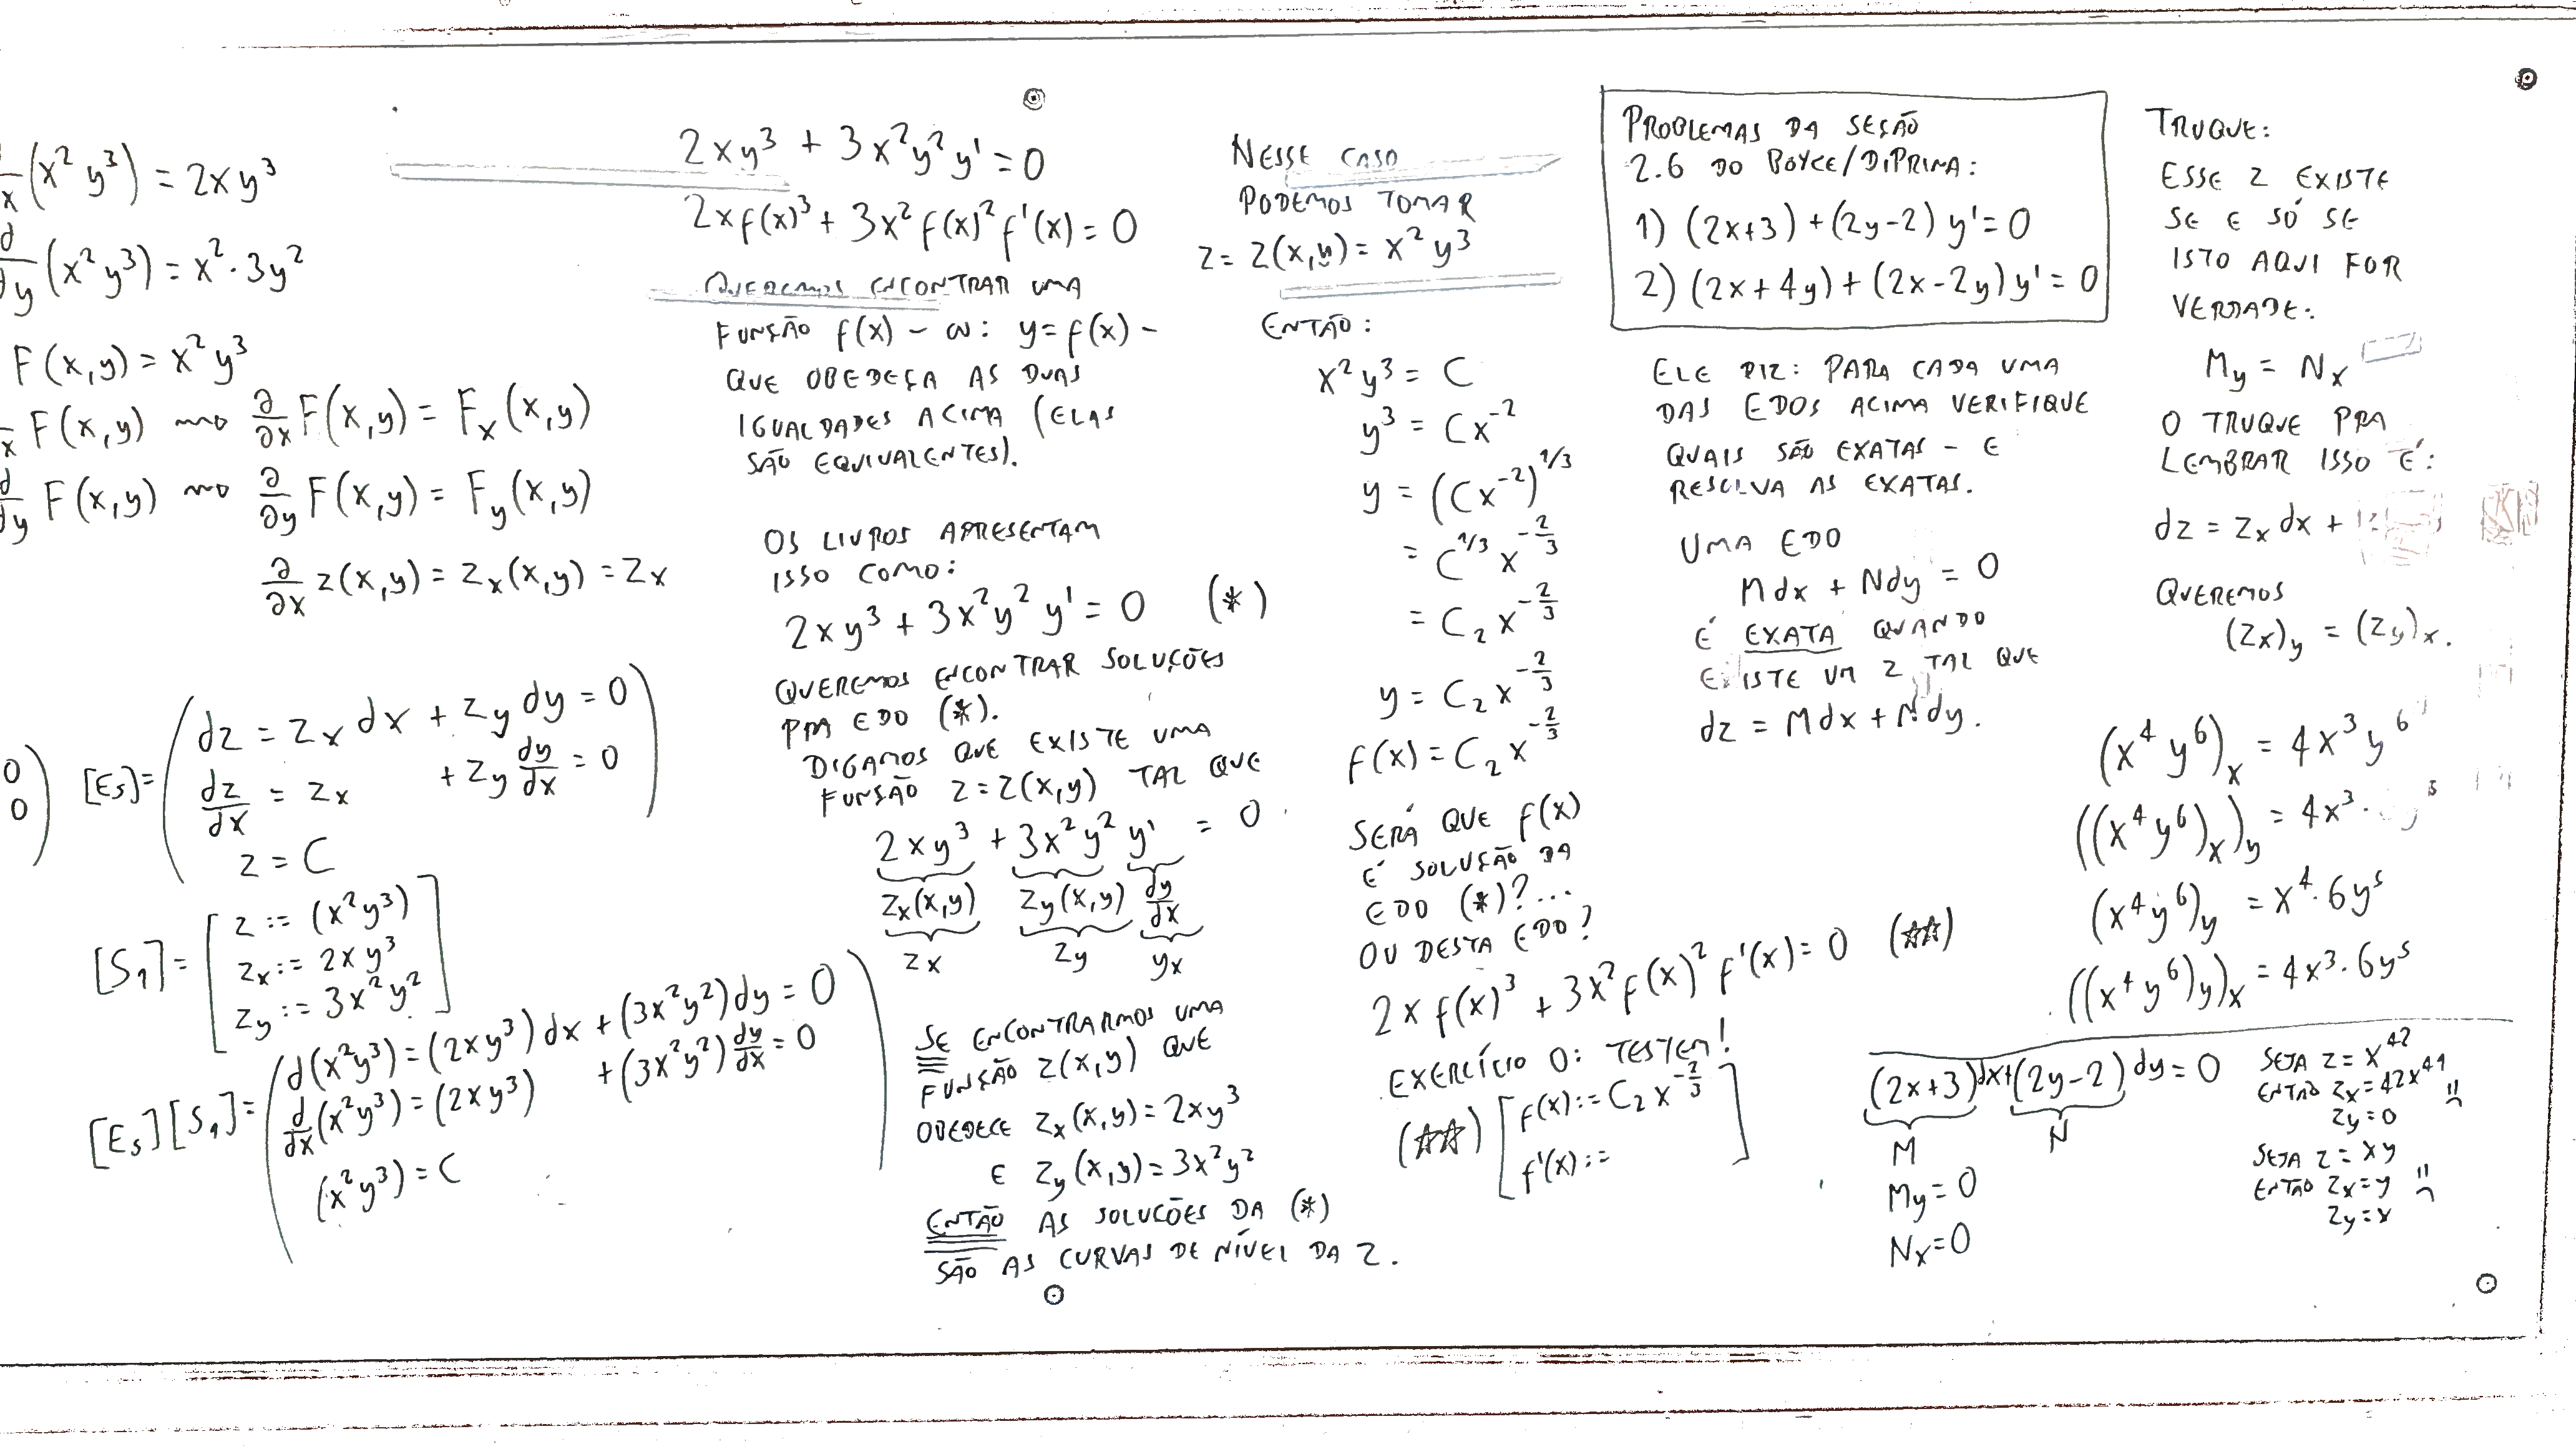 x (x² y³) = 2xy³
d/dy (x² y³) = x² · 3y²
F(x,y) = x² y³
x F(x,y) ⇝ ∂/∂x F(x,y) = Fx(x,y)
d/dy F(x,y) ⇝ ∂/∂y F(x,y) = Fy(x,y)
∂/∂x z(x,y) = zx(x,y) = zx
0
0 )
[E5] = ( dz = zx dx + zy dy = 0
dz/dx = zx + zy dy/dx = 0
z = C )
[S1] = [ z := (x²y³)
zx := 2xy³
zy := 3x²y² ]
[E5][S1] = ( d(x²y³) = (2xy³)dx + (3x²y²)dy = 0
d/dx(x²y³) = (2xy³) + (3x²y²) dy/dx = 0
(x²y³) = C )
2xy³ + 3x²y²y' = 0
2xf(x)³ + 3x²f(x)²f'(x) = 0
QUEREMOS ENCONTRAR UMA
FUNÇÃO f(x) – ou: y=f(x) –
QUE OBEDEÇA AS DUAS
IGUALDADES ACIMA (ELAS
SÃO EQUIVALENTES).
OS LIVROS APRESENTAM
ISSO COMO:
2xy³ + 3x²y²y' = 0 (*)
QUEREMOS ENCONTRAR SOLUÇÕES
PRA EDO (*).
DIGAMOS QUE EXISTE UMA
FUNÇÃO z=z(x,y) TAL QUE
2xy³ + 3x²y² y' = 0
zx(x,y) zy(x,y) dy/dx
zx zy yx
SE ENCONTRARMOS UMA
FUNÇÃO z(x,y) QUE
OBEDECE zx(x,y) = 2xy³
E zy(x,y) = 3x²y²
ENTÃO AS SOLUÇÕES DA (*)
SÃO AS CURVAS DE NÍVEL DA z.
NESSE CASO
PODEMOS TOMAR
z = z(x,y) = x² y³
ENTÃO:
x² y³ = C
y³ = Cx⁻²
y = (Cx⁻²)^1/3
= C^1/3 x^-2/3
= C2 x^-2/3
y = C2 x^-2/3
f(x) = C2 x^-2/3
SERÁ QUE f(x)
É SOLUÇÃO DA
EDO (*)?...
OU DESTA EDO?
2x f(x)³ + 3x² f(x)² f'(x) = 0 (☆☆)
EXERCÍCIO 0: TESTEM!
(☆☆) [ f(x) := C2 x^-2/3
f'(x) := ]
PROBLEMAS DA SEÇÃO
2.6 DO BOYCE/DIPRIMA:
1) (2x+3) + (2y-2) y' = 0
2) (2x+4y) + (2x-2y) y' = 0
ELE DIZ: PARA CADA UMA
DAS EDOS ACIMA VERIFIQUE
QUAIS SÃO EXATAS – E
RESOLVA AS EXATAS.
UMA EDO
Mdx + Ndy = 0
É EXATA QUANDO
EXISTE UM z TAL QUE
dz = Mdx + Ndy.
TRUQUE:
ESSE z EXISTE
SE E SÓ SE
ISTO AQUI FOR
VERDADE:
My = Nx
O TRUQUE PRA
LEMBRAR ISSO É:
dz = zx dx +
QUEREMOS
(zx)y = (zy)x.
(x⁴ y⁶)x = 4x³ y⁶
((x⁴ y⁶)x)y = 4x³·
(x⁴ y⁶)y = x⁴·6y⁵
((x⁴ y⁶)y)x = 4x³·6y⁵
(2x+3)dx + (2y-2)dy = 0
M N
My = 0
Nx = 0
SEJA z = x⁴²
ENTÃO zx = 42x⁴¹
zy = 0
SEJA z = xy
ENTÃO zx = y
zy = x